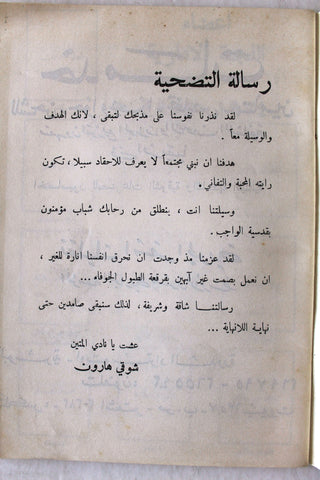 رسالة التضحية
لقد نذرنا نفوسنا على مذبحك لتبقى ، لانك الهدف
والوسيلة معاً .
هدفنا ان نبني مجتمعاً لا يعرف للاحقاد سبيلا ، تكون
رايته المحبة والتفاني .
وسيلتنا انت ، ينطلق من رحابك شباب مؤمنون
بقدسية الواجب .
لقد عزمنا مذ وجدت ان نحرق انفسنا انارة للغير ،
ان نعمل بصمت غير آبهين بقرقعة الطبول الجوفاء ...
رسالتنـــا شاقة وشريفة ، لذلك سنبقى صامدين حتى
نهاية اللانهاية ...
عشت يا نادي المتين
شوقي هارون